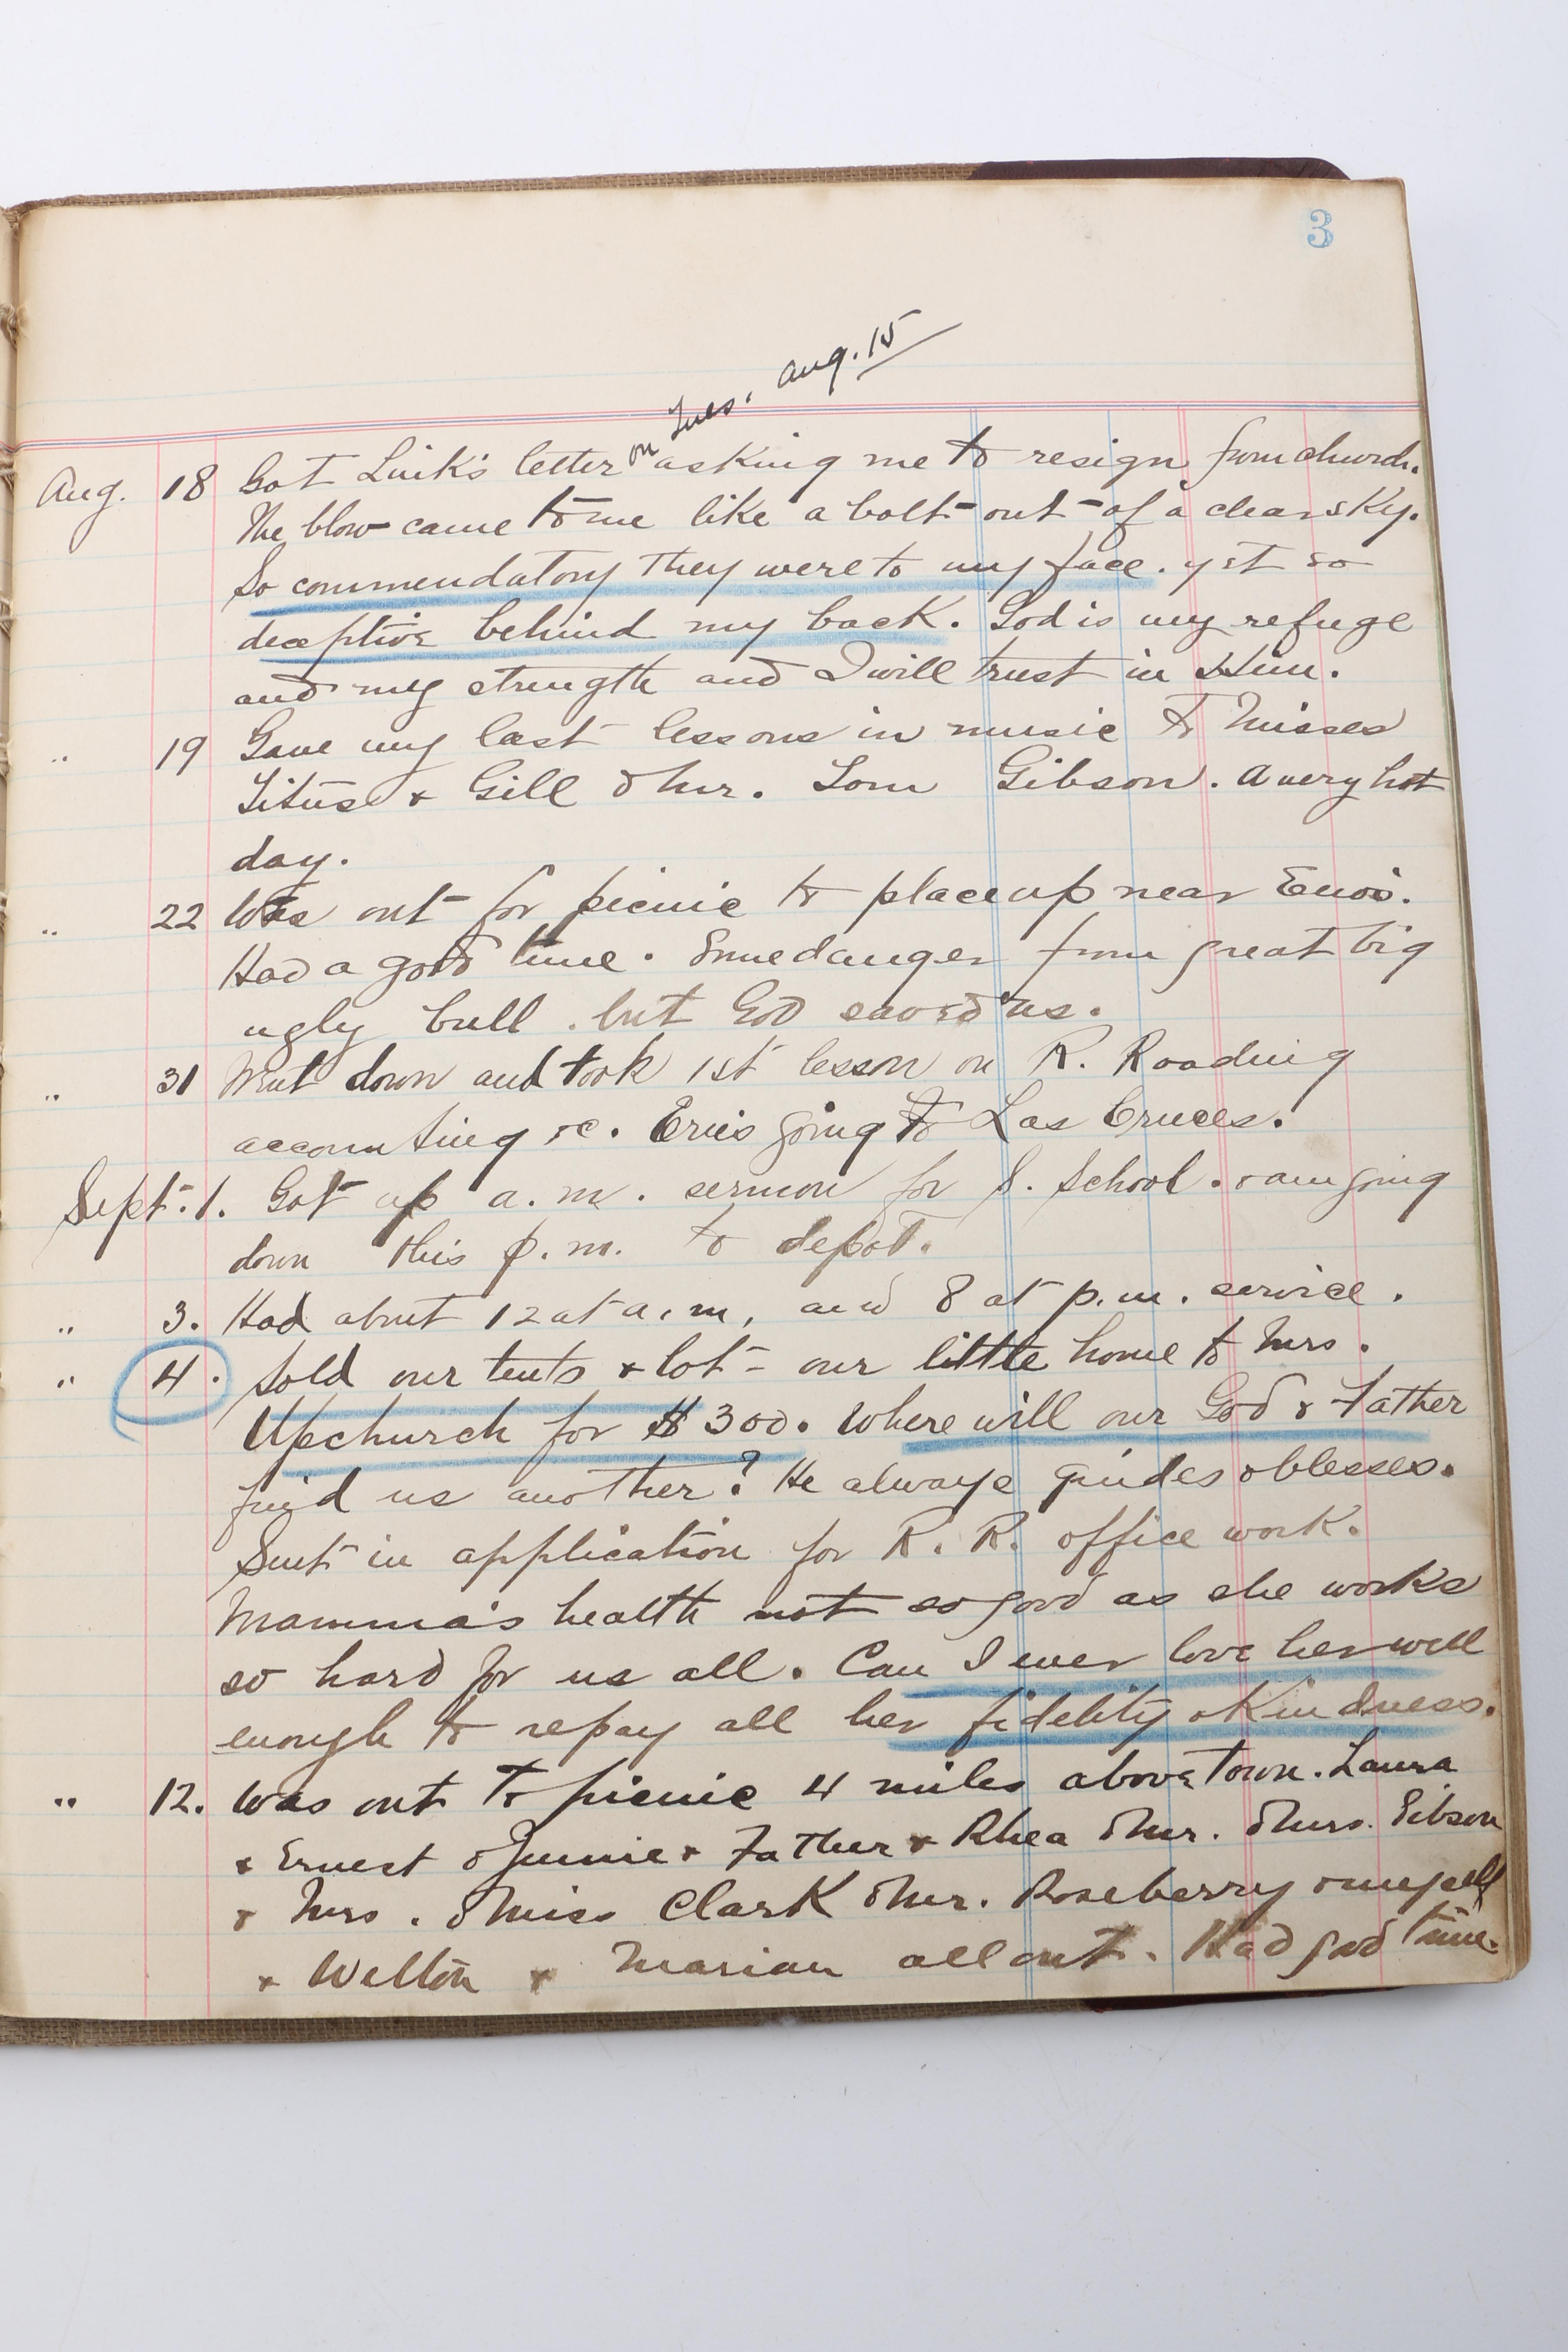 3
on Tues. Aug. 15
Aug. 18 Got Link's letter asking me to resign from church.
The blow came to me like a bolt out of a clear sky.
So commendatory they were to my face. yet so
deceptive behind my back. God is my refuge
and my strength and I will trust in Him.
" 19 Gave my last lessons in music to Misses
Titus & Gill & Mr. Tom Gibson. A very hot
day.
" 22 Was out for picnic to place up near
Had a good time. Some danger from great big
ugly bull. but God saved us.
" 31 Went down and took 1st lesson on R. Roading
accounting &c. going to Las Cruces.
Sept. 1. Got up a.m. sermon for S. School. & am going
down this p.m. to depot.
" 3. Had about 12 at a.m, and 8 at p.m. service.
" 4. Sold our tents & lot - our little home to Mrs.
Upchurch for $300. Where will our God & Father
find us another? He always guides & blesses.
Sent in application for R. R. office work.
Mamma's health not so good as she works
so hard for us all. Can I ever love her well
enough to repay all her fidelity & kindness.
" 12. Was out to picnic 4 miles above town. Laura
& Ernest & Jennie & Father & Rhea & Mr. & Mrs. Gibson
& Mrs. & Miss Clark & Mr. Roseberry & myself
& Welton & Marian all out. Had good time.